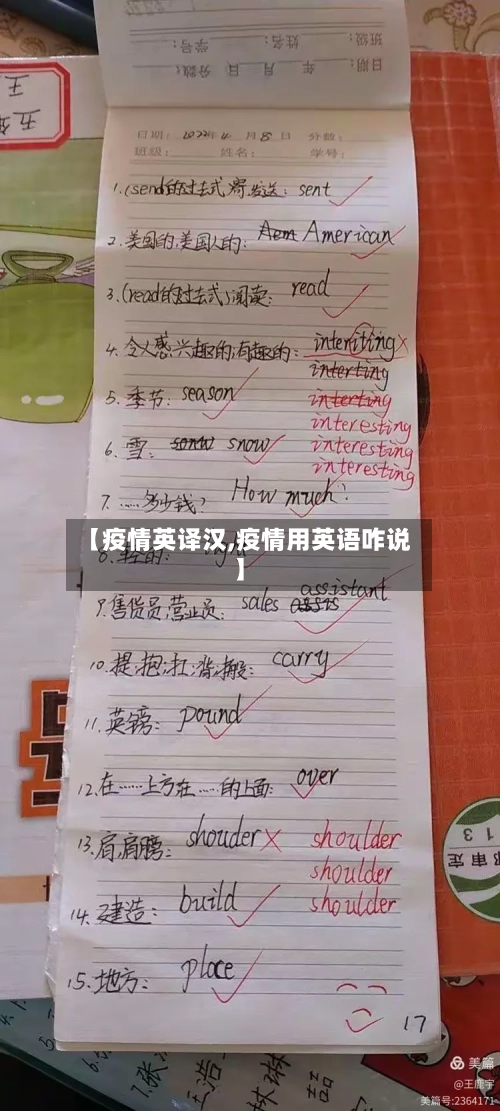 班级： 姓名： 学号：
日期： 年 月 日 分数：
五年
王
日期：2022年4月8日 分数：
班级： 姓名： 学号：
1.(send的过去式)寄,发送：sent
2.美国的,美国人的：Aem American
3.(read的过去式)阅读：read
4.令人感兴趣的;有趣的：interiting×
interting
5.季节：season interting
interesting
6.雪：sonw snow interesting
interesting
7.……多少钱？ How much?
【疫情英译汉,疫情用英语咋说
】
9.售货员,营业员：sales assis assistant
10.提;抱;扛;背;搬：carry
11.英镑：pound
12.在……上方在……的上面：over
13.肩,肩膀：shouder× shoulder
shoulder
14.建造：build shoulder
15.地方：place
17
审定
13
美篇
@王鹿宇
美篇号:2364171